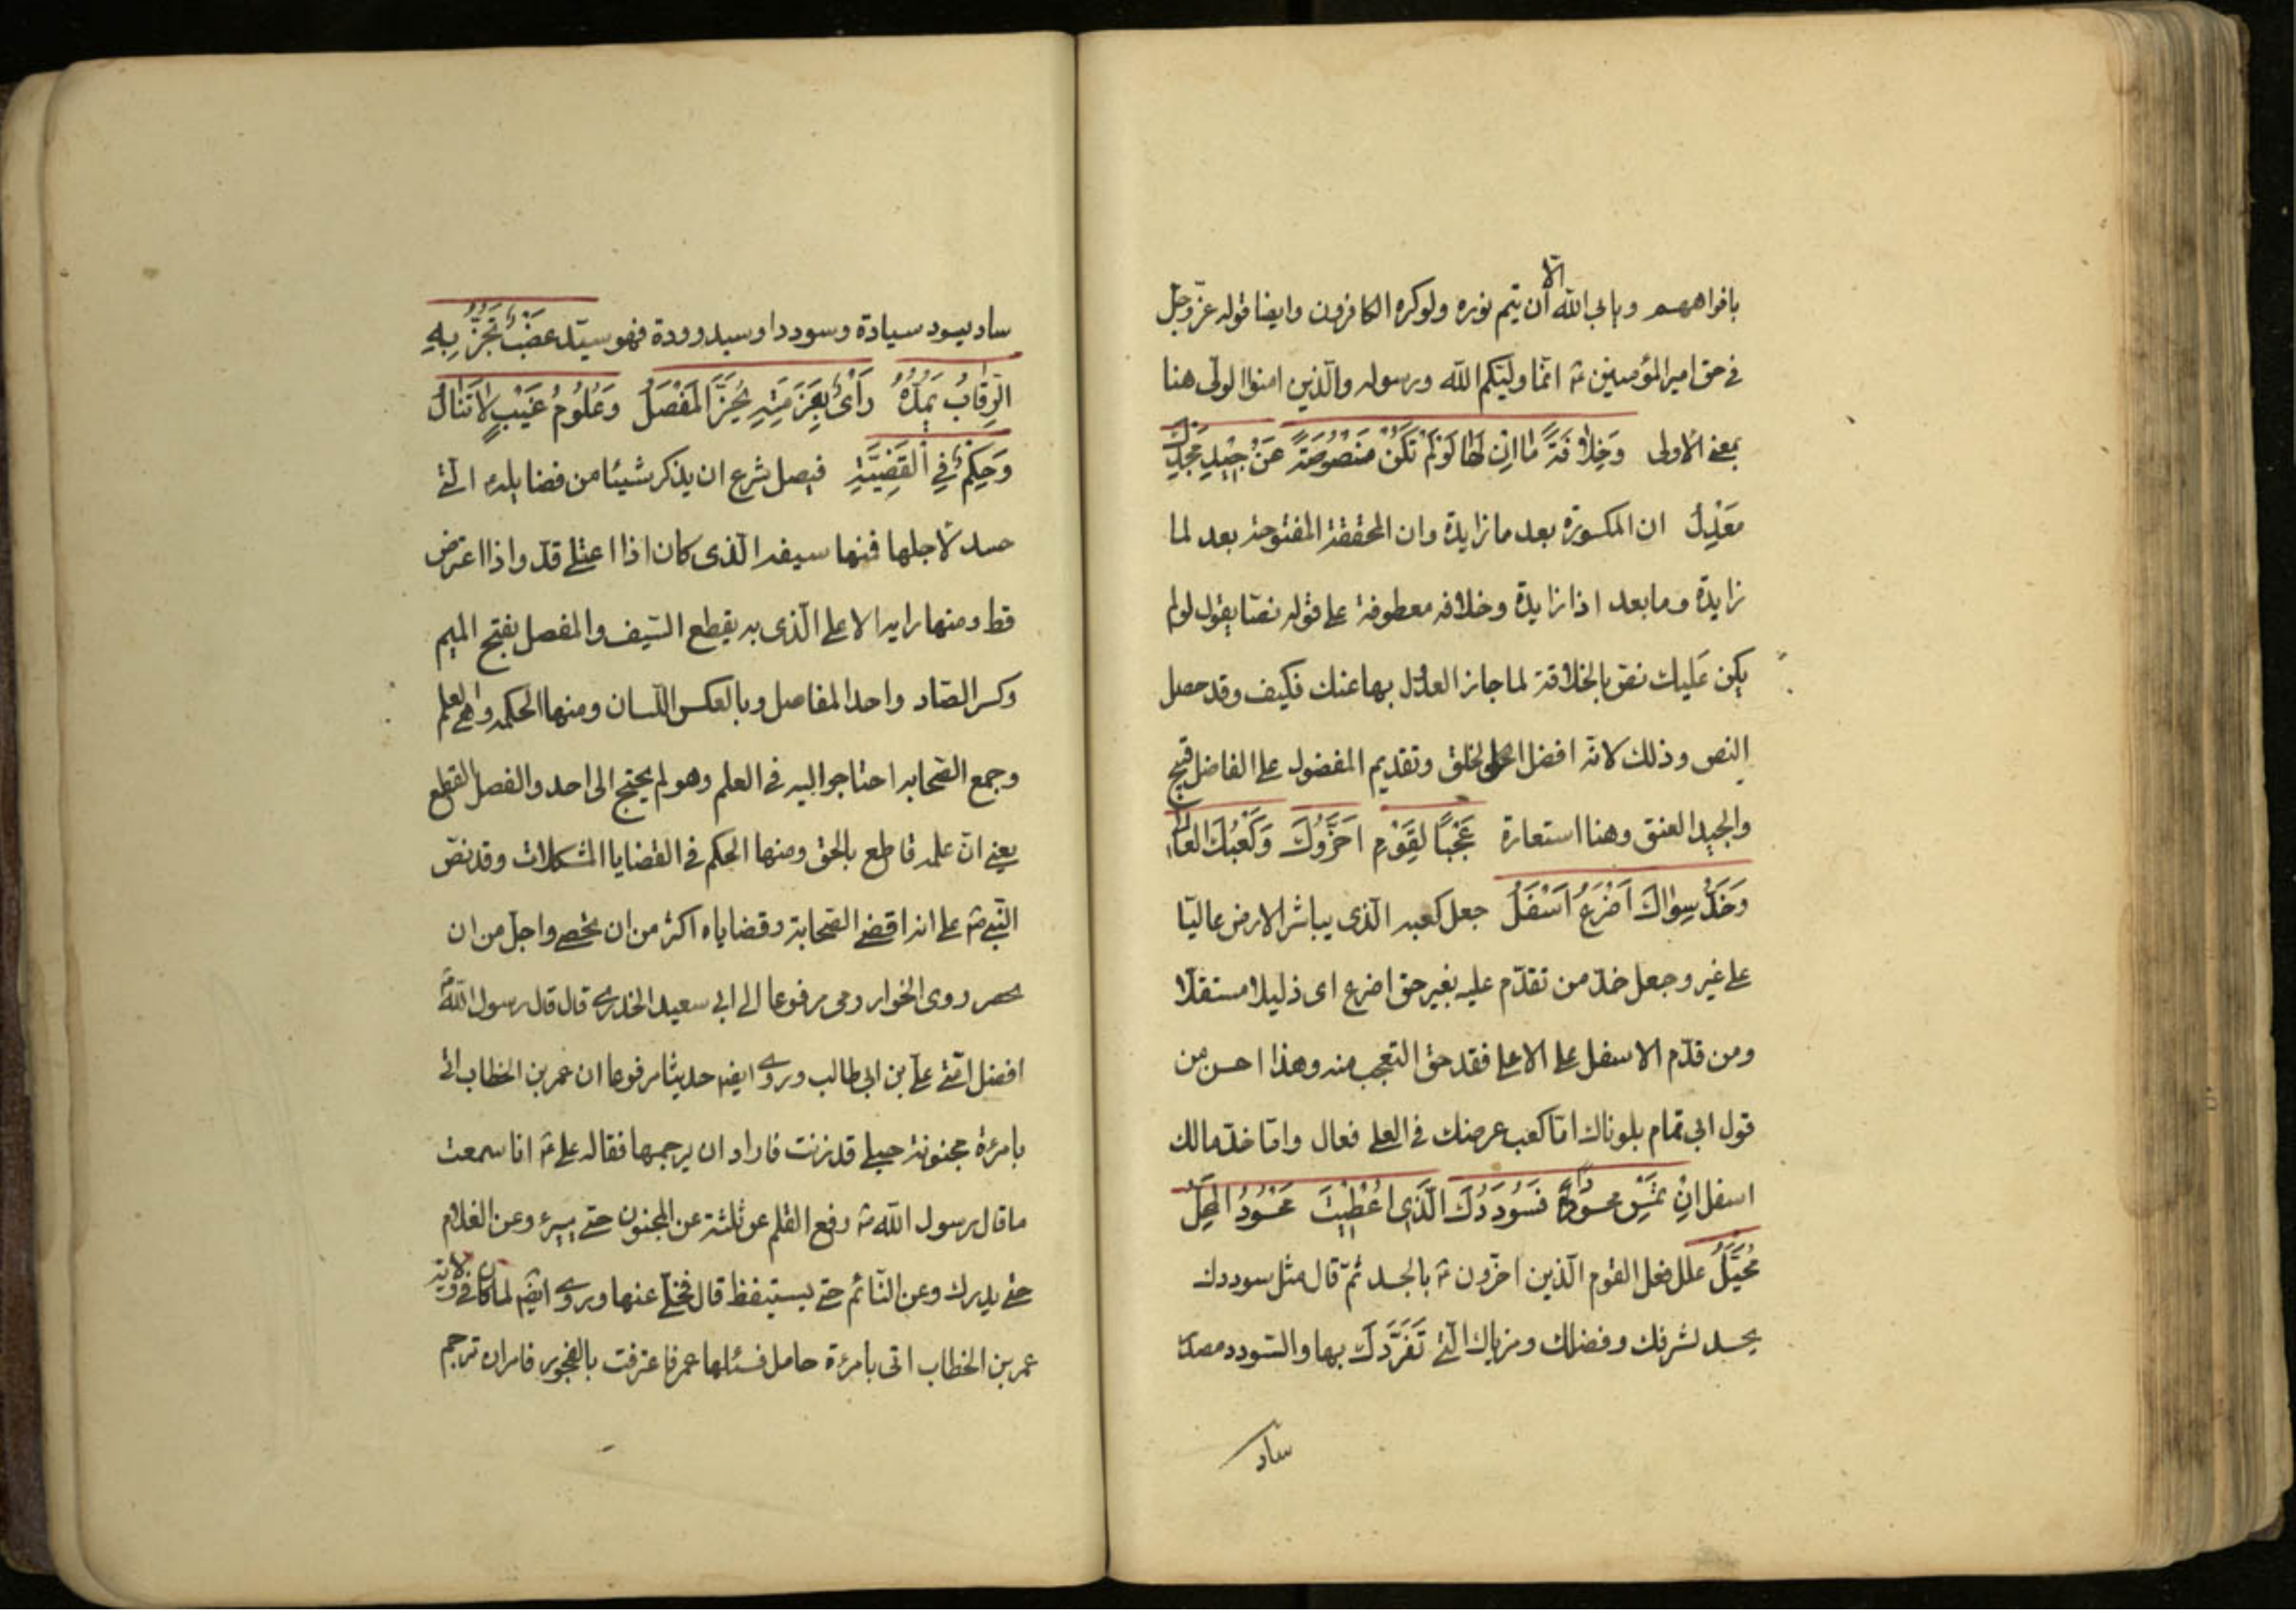 بافواههم ويابى الله الا ان يتم نوره ولوكره الكافرون وايضا قوله عزّ وجلّ
فى حق امير المؤمنين ع انّما وليّكم الله ورسوله والّذين امنوا الولى هنا
بمعنى الاولى وَخِلافَةً ما اِن لَها لَوْ لَمْ تَكُنْ مَنْصُوصَةً عَنْ جِيْدِ مَجْدِكَ
مَعْدِلُ ان المكسورة بعد ما زايدة وان المخففة المفتوحة بعد لما
زايدة وما بعد اذا زايدة وخلافه معطوفة على قوله نصّا يقول لو لم
يكن عليك نص بالخلافة لما جاز العدل بها عنك فكيف وقد حصل
النص وذلك لانّه افضل الخلق وتقديم المفضول على الفاضل قبيح
والجيد العنق وهنا استعارة عَجَبًا لِقَوْمٍ اَخَّرُوكَ وَكَعْبُكَ العالى
وَخَدُّ سِواكَ اَضْرَعُ اَسْفَلُ جعل كعبه الّذى يباشر الارض عاليًا
على غير وجعل خدّ من تقدّم عليه بغير حق اضرع اى ذليلا مستفلا
ومن قدّم الاسفل على الاعلى فقد حق التعجب منه وهذا احسن من
قول ابى تمام بلوناك امّا كعب عرضك فى العلى فعال وامّا خدّ مالك
اسفل اِنْ تُمْسِ محسودًا فَسُودَدُكَ الَّذِى اُعْطِيْتَ مَحْسُودُ المَحَلِّ
مُخَيَّلُ علل فعل القوم الّذين اخّرون ع بالحسد ثمّ قال مثل سوددك
يحسد لشرفك وفضلك ومزاياك الّتى تَفَرَّدْتَ بها والسّودد مصدر
ساد
ساد يسود سيادة وسوددا وسيدودة فهو سيّد عَضْبٌ تُجَزُّ بِهِ
الرِّقابُ يَمُدُّهُ رَأىٌ بِعَزْمَتِهِ يُحَزُّ المَفْصَلُ وَعُلُومُ غَيْبٍ لا تُنالُ
وَحِكْمَةٌ فِى القَضِيَّةِ فيصل شرع ان يذكر شيئا من فضايله الّتى
حسد لاجلها فمنها سيفه الّذى كان اذا اعتلى قدّ واذا اعترض
قط ومنها رايه الاعلى الّذى به يقطع السّيف والمفصل بفتح الميم
وكسر الصّاد واحد المفاصل وبالعكس اللّسان ومنها الحكمه وهى العلم
وجمع الصّحابه احتاجوا اليه فى العلم وهو لم يحتج الى احد والفصل القطع
يعنى انّ علمه قاطع بالحق ومنها الحكم فى القضايا المشكلات وقد نصّ
النّبى ص على انه اقضى الصّحابة وقضاياه اكثر من ان تحصى واجلّ من ان
تحصر روى الخوارزمى مرفوعا الى ابى سعيد الخدرى قال قال رسول الله ص
افضل امّتى علىّ بن ابى طالب وروى ايضه حديثا مرفوعا ان عمر بن الخطاب اتى
بامرئة مجنونة حبلى قد زنت فاراد ان يرجمها فقال له على ع اما سمعت
ما قال رسول الله ص رفع القلم عن ثلثة عن المجنون حتى يبرء وعن الغلام
حتى يدرك وعن النّائم حتى يستيقظ قال فخلّى عنها وروى ايضه لما كان فى ولاية
عمر بن الخطاب اتى بامرئة حامل فسئلها عمر فاعترفت بالفجور فامر ان ترجم